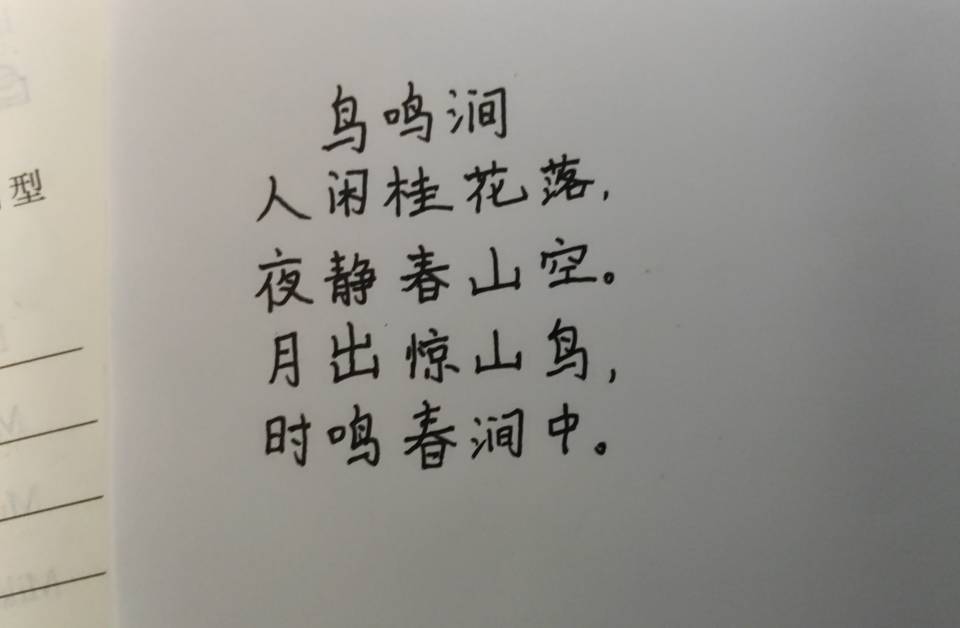 鸟鸣涧
人闲桂花落,
夜静春山空。
月出惊山鸟,
时鸣春涧中。
型